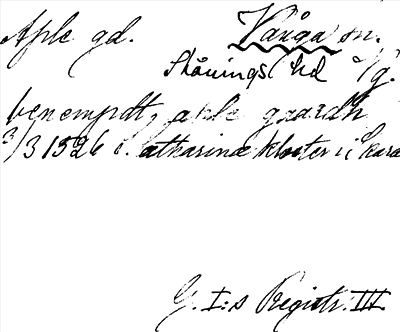 Aple gd. Vånga sn.
Skånings hd Vg.
benempdt, aple gaardh
3/3 1526 i. Catharinæ kloster i Skara
G. I:s Registr. III.